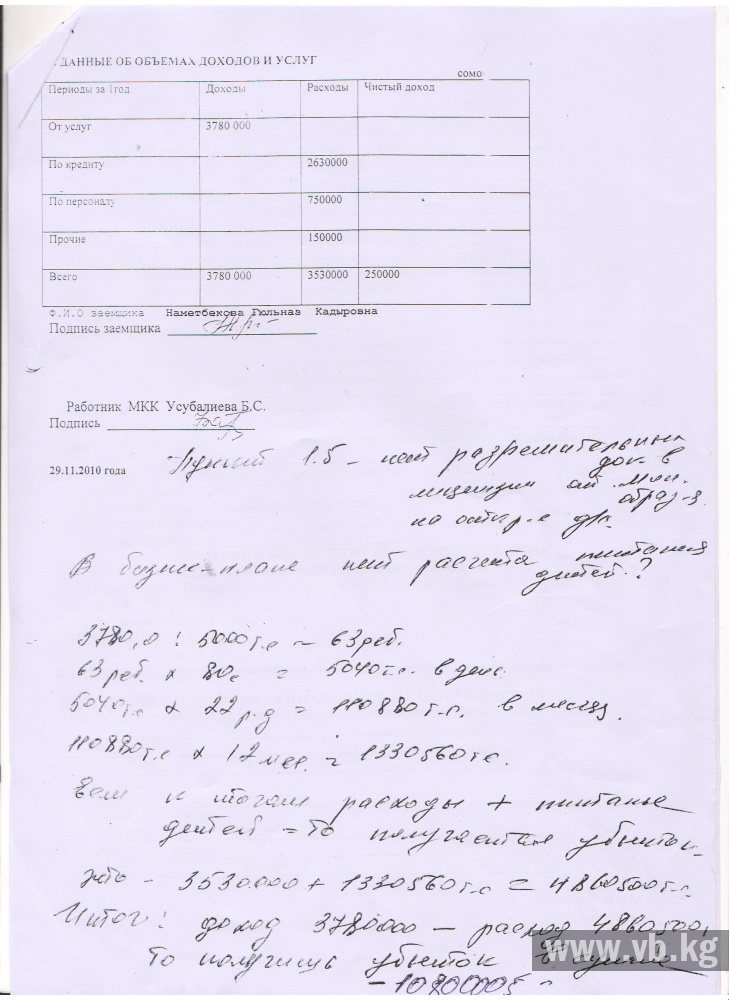 ДАННЫЕ ОБ ОБЪЕМАХ ДОХОДОВ И УСЛУГ
сомо
Периоды за 1год Доходы Расходы Чистый доход
От услуг 3780 000
По кредиту 2630000
По персоналу 750000
Прочие 150000
Всего 3780 000 3530000 250000
Ф.И.О заемщика Наметбекова Гюльназ Кадыровна
Подпись заемщика
Работник МКК Усубалиева Б.С.
Подпись
29.11.2010 года
Пункт 1.5 – нет разрешительных
док. в
лицензии от Мин.
образ-я
на откр-е д/с.
В бизнес-плане нет расчета питания
детей?
3780,0 : 5000т.с – 63 реб.
63 реб. х 80с = 5040т.с. в день
5040т.с х 22 р.д = 110880 т.с. в месяц.
110880т.с х 12 мес. = 1330560т.с.
Если к итогам расходы + питание
детей = то получается убыток
это – 3530.000 + 1330560т.с = 4860500т.с.
Итог: доход 3780000 – расход 4860500,
То получишь убыток в сумме
– 1080000
www.vb.kg